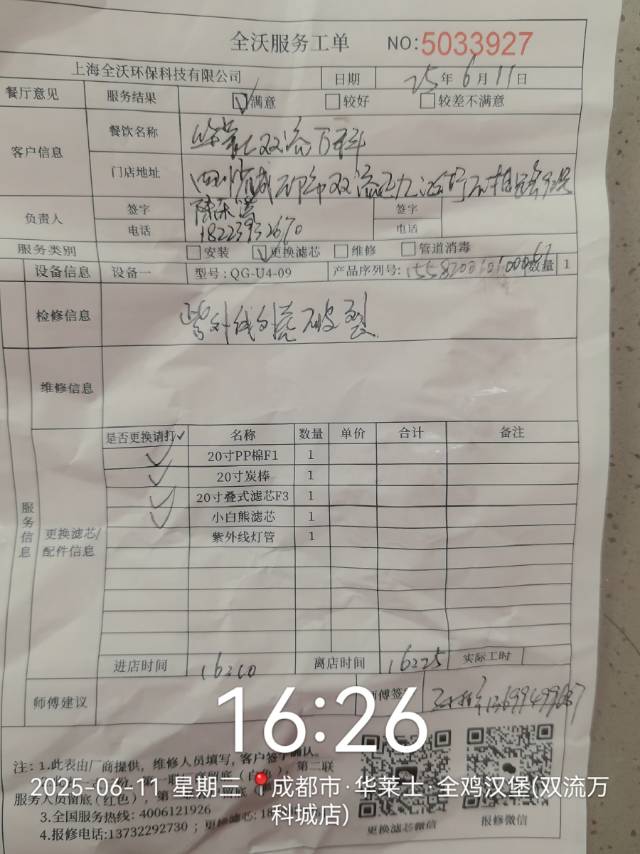 全沃服务工单 NO:5033927
上海全沃环保科技有限公司 日期 25年6月11日
餐厅意见 服务结果 ☑满意 □较好 □较差不满意
客户信息 餐饮名称 华莱士双流万科
门店地址 四川省成都市双流区
负责人 签字 签字
电话 电话
服务类别 □安装 ☑更换滤芯 □维修 □管道消毒
设备信息 设备一 型号:QG-U4-09 产品序列号: 数量 1
检修信息 紫外线灯管破裂
维修信息
服务信息 更换滤芯/配件信息
是否更换请打✓ 名称 数量 单价 合计 备注
✓ 20寸PP棉F1 1
✓ 20寸炭棒 1
✓ 20寸叠式滤芯F3 1
✓ 小白熊滤芯 1
紫外线灯管 1
进店时间 离店时间 16:25 实际工时
师傅建议 师傅签
16:26
注:1.此表由厂商提供,维修人员填写,客户签字确认。
2025-06-11 星期三 成都市·华莱士·全鸡汉堡(双流万科城店)
服务人员留底(红色),第
3.全国服务热线:4006121926
4.报修电话:13732292730;更换滤芯:
更换滤芯微信 报修微信